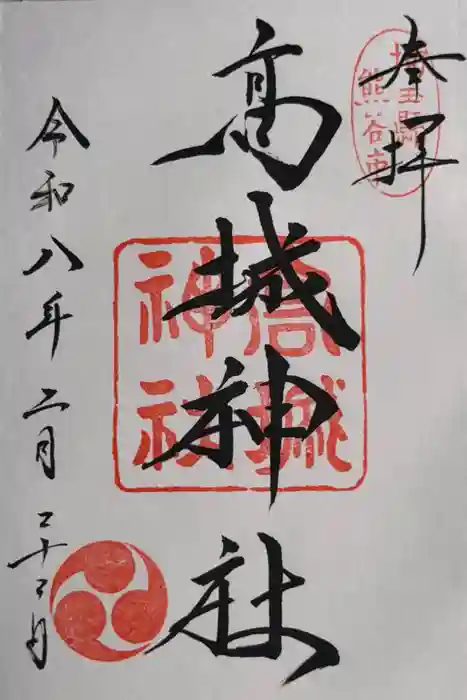 奉拝
埼玉縣
熊谷市
高城神社
高城
神社
令和八年二月二十二日